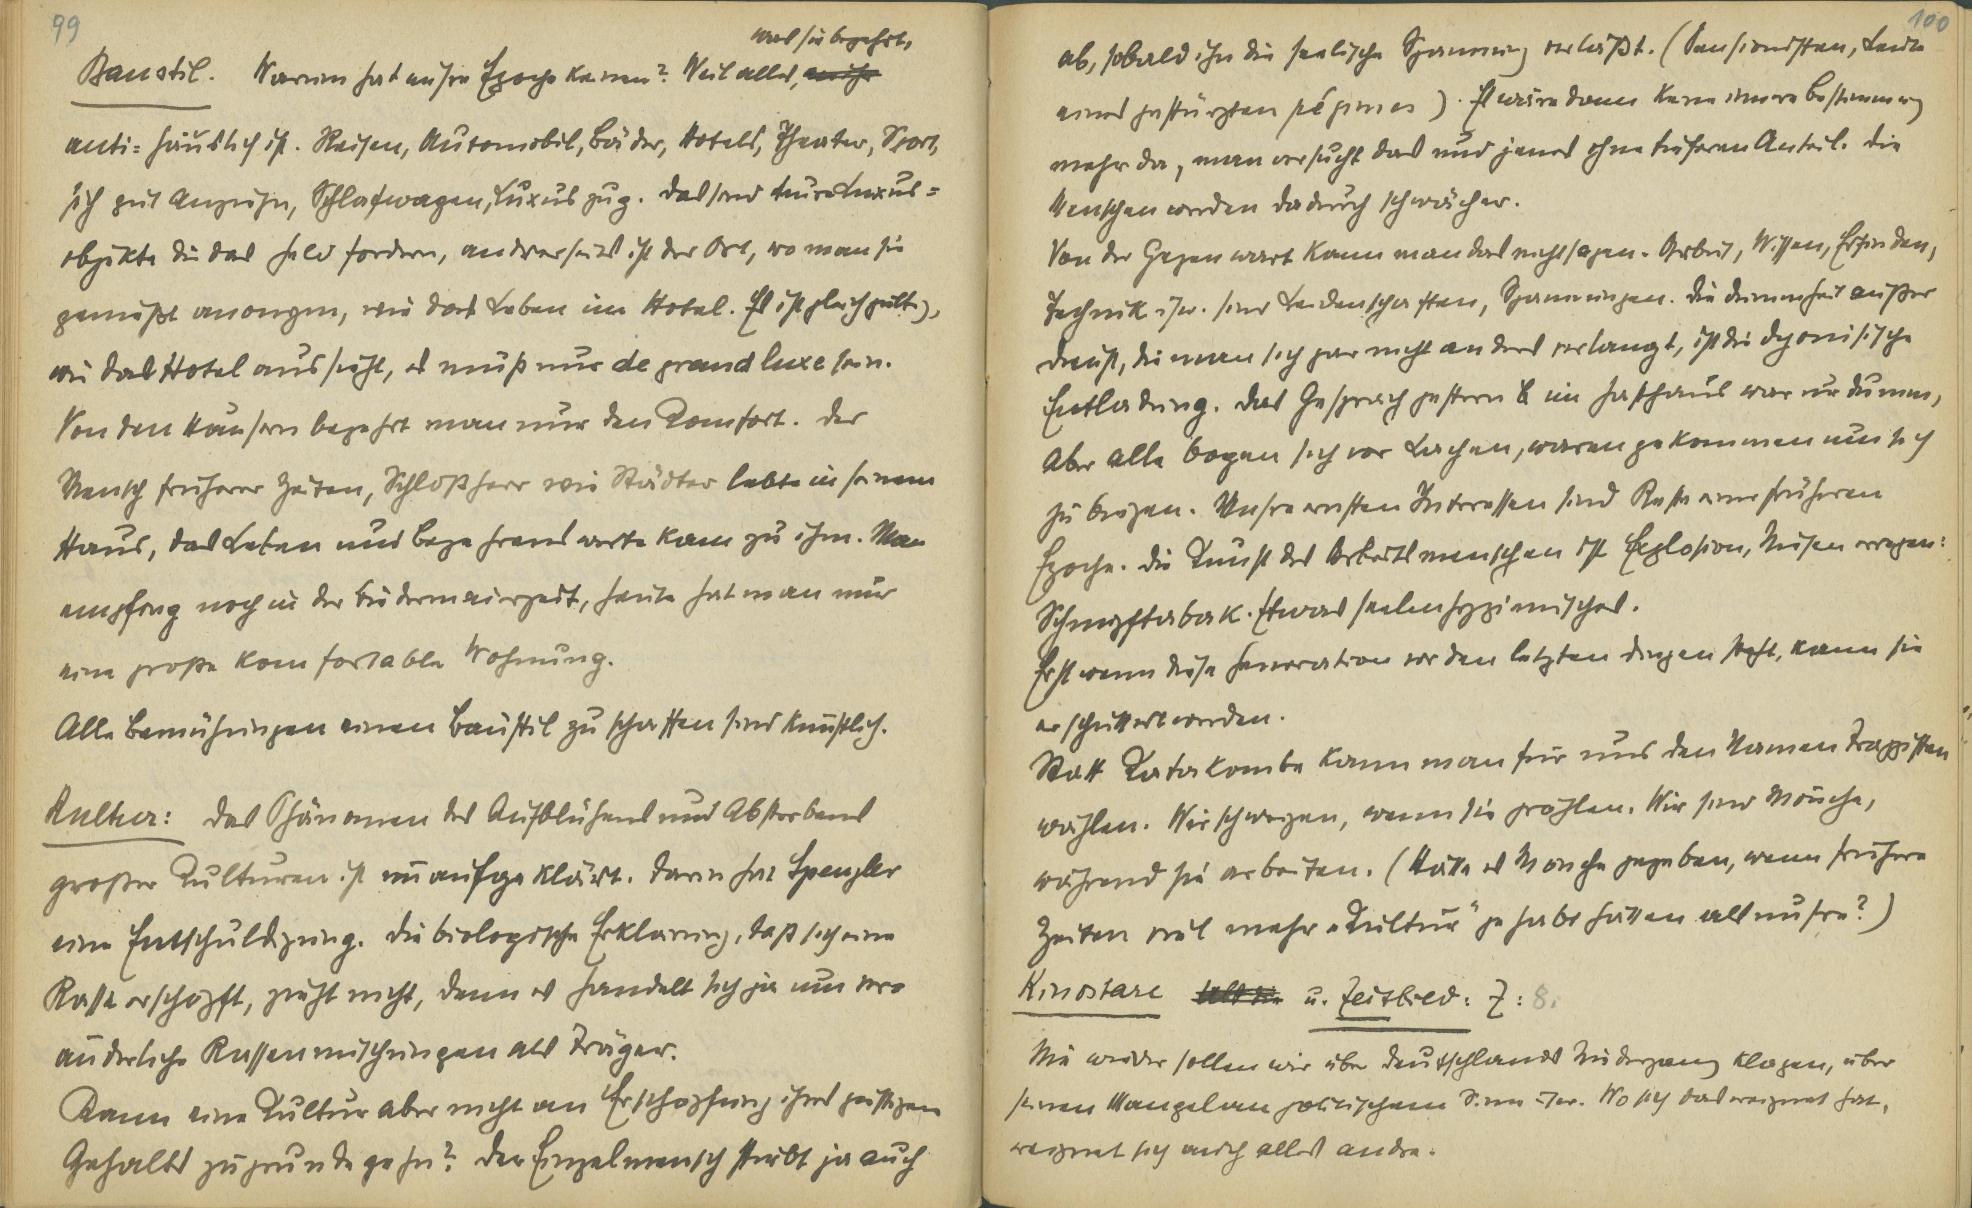 99
was sie begehrt,
Baustil. Warum hat unsre Epoche keinen? Weil alles,
anti-häuslich ist. Reisen, Automobil, Bäder, Hotels, Theater, Sport,
sich gut Anziehn, Schlafwagen, Luxuszug. Das sind teure Luxus=
objekte die das Geld fordern, andrerseits ist der Ort, wo man sie
genießt anonym, wie das Leben im Hotel. Es ist gleichgültig,
wie das Hotel aussieht, es muß nur de grand luxe sein.
Von den Häusern begehrt man nur den Komfort. Der
Mensch früherer Zeiten, Schloßherr wie Städter lebte in seinem
Haus, das Leben und Begehrenswerte kam zu ihm. Man
empfing noch in der Biedermeierzeit, heute hat man nur
eine große komfortable Wohnung.
Alle Bemühungen einen Baustil zu schaffen sind künstlich.
Kultur: Das Phänomen des Aufblühens und Absterbens
großer Kulturen ist unaufgeklärt. Darin hat Spengler
eine Entschuldigung. Die biologische Erklärung, daß sich eine
Rasse erschöpft, zieht nicht, denn es handelt sich ja um ver
änderliche Rassenmischungen als Träger.
Kann eine Kultur aber nicht an Erschöpfung ihres geistigen
Gehalts zugrunde gehn? Der Einzelmensch stirbt ja auch
100
ab, sobald ihn die seelische Spannung verläßt. (Pensionisten, Leute
eines gestürzten régimes). Es wäre dann keine innere Bestimmung
mehr da, man versucht das und jenes ohne tieferen Anteil. Die
Menschen werden dadurch schwächer.
Von der Gegenwart kann man das nicht sagen. Arbeit, Wissen, Erfinden,
Technik usw. sind Leidenschaften, Spannungen. Die Dummheit außer
Dienst, die man sich gar nicht anders verlangt, ist die dyonisische
Entladung. Das Gespräch gestern im Gasthaus war nur dumm,
aber alle bogen sich vor Lachen, waren gekommen um sich
zu biegen. Unsre ernsten Interessen sind Reste einer früheren
Epoche. Die Kunst des Arbeitsmenschen ist Explosion, Niesen erregen:
Schnupftabak. Etwas seelenhygienisches.
Erst wenn diese Generation vor den letzten Dingen steht, kann sie
erschüttert werden.
Statt Katakombe kann man für uns den Namen Trappisten
wählen. Wir schweigen, wenn sie gröhlen. Wir sind Mönche,
während sie arbeiten. (Hätte es Mönche gegeben, wenn frühere
Zeiten viel mehr „Kultur" gehabt hätten als unsre?)
Kinostare u. Zeitbild: Z: 8.
Nie wieder sollen wir über Deutschlands Niedergang klagen, über
seinen Mangel an politischem Sinn usw. Wo sich das ereignet hat,
ereignet sich auch alles andre.